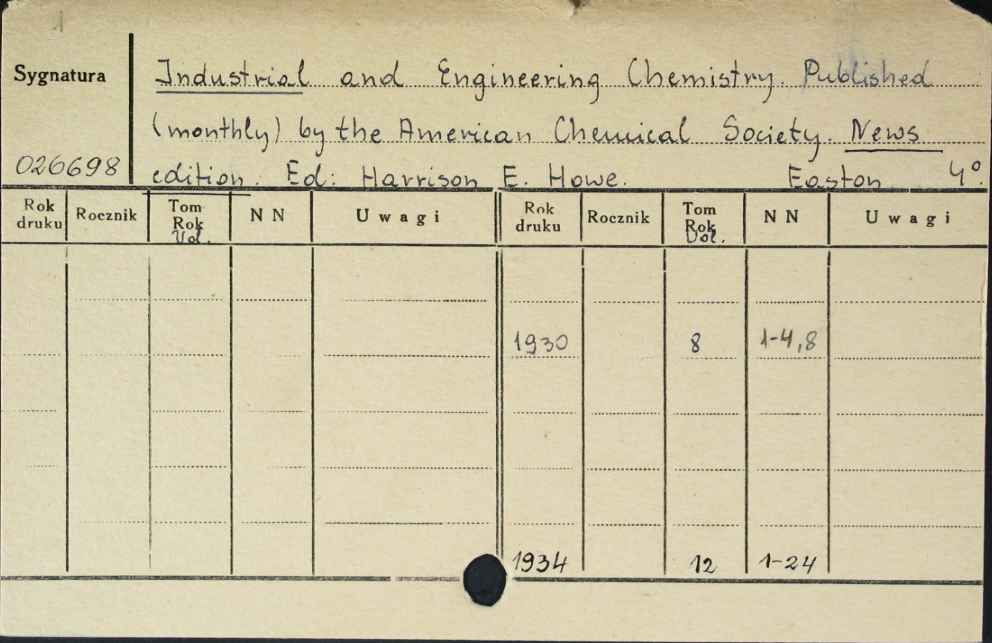 Sygnatura
Industrial and Engineering Chemistry. Published
(monthly) by the American Chemical Society. News
026698
edition. Ed: Harrison E. Howe. Easton 4°.
Rok druku Rocznik Tom Rok Vol. NN Uwagi Rok druku Rocznik Tom Rok Vol. NN Uwagi
1930 8 1-4,8
1934 12 1-24